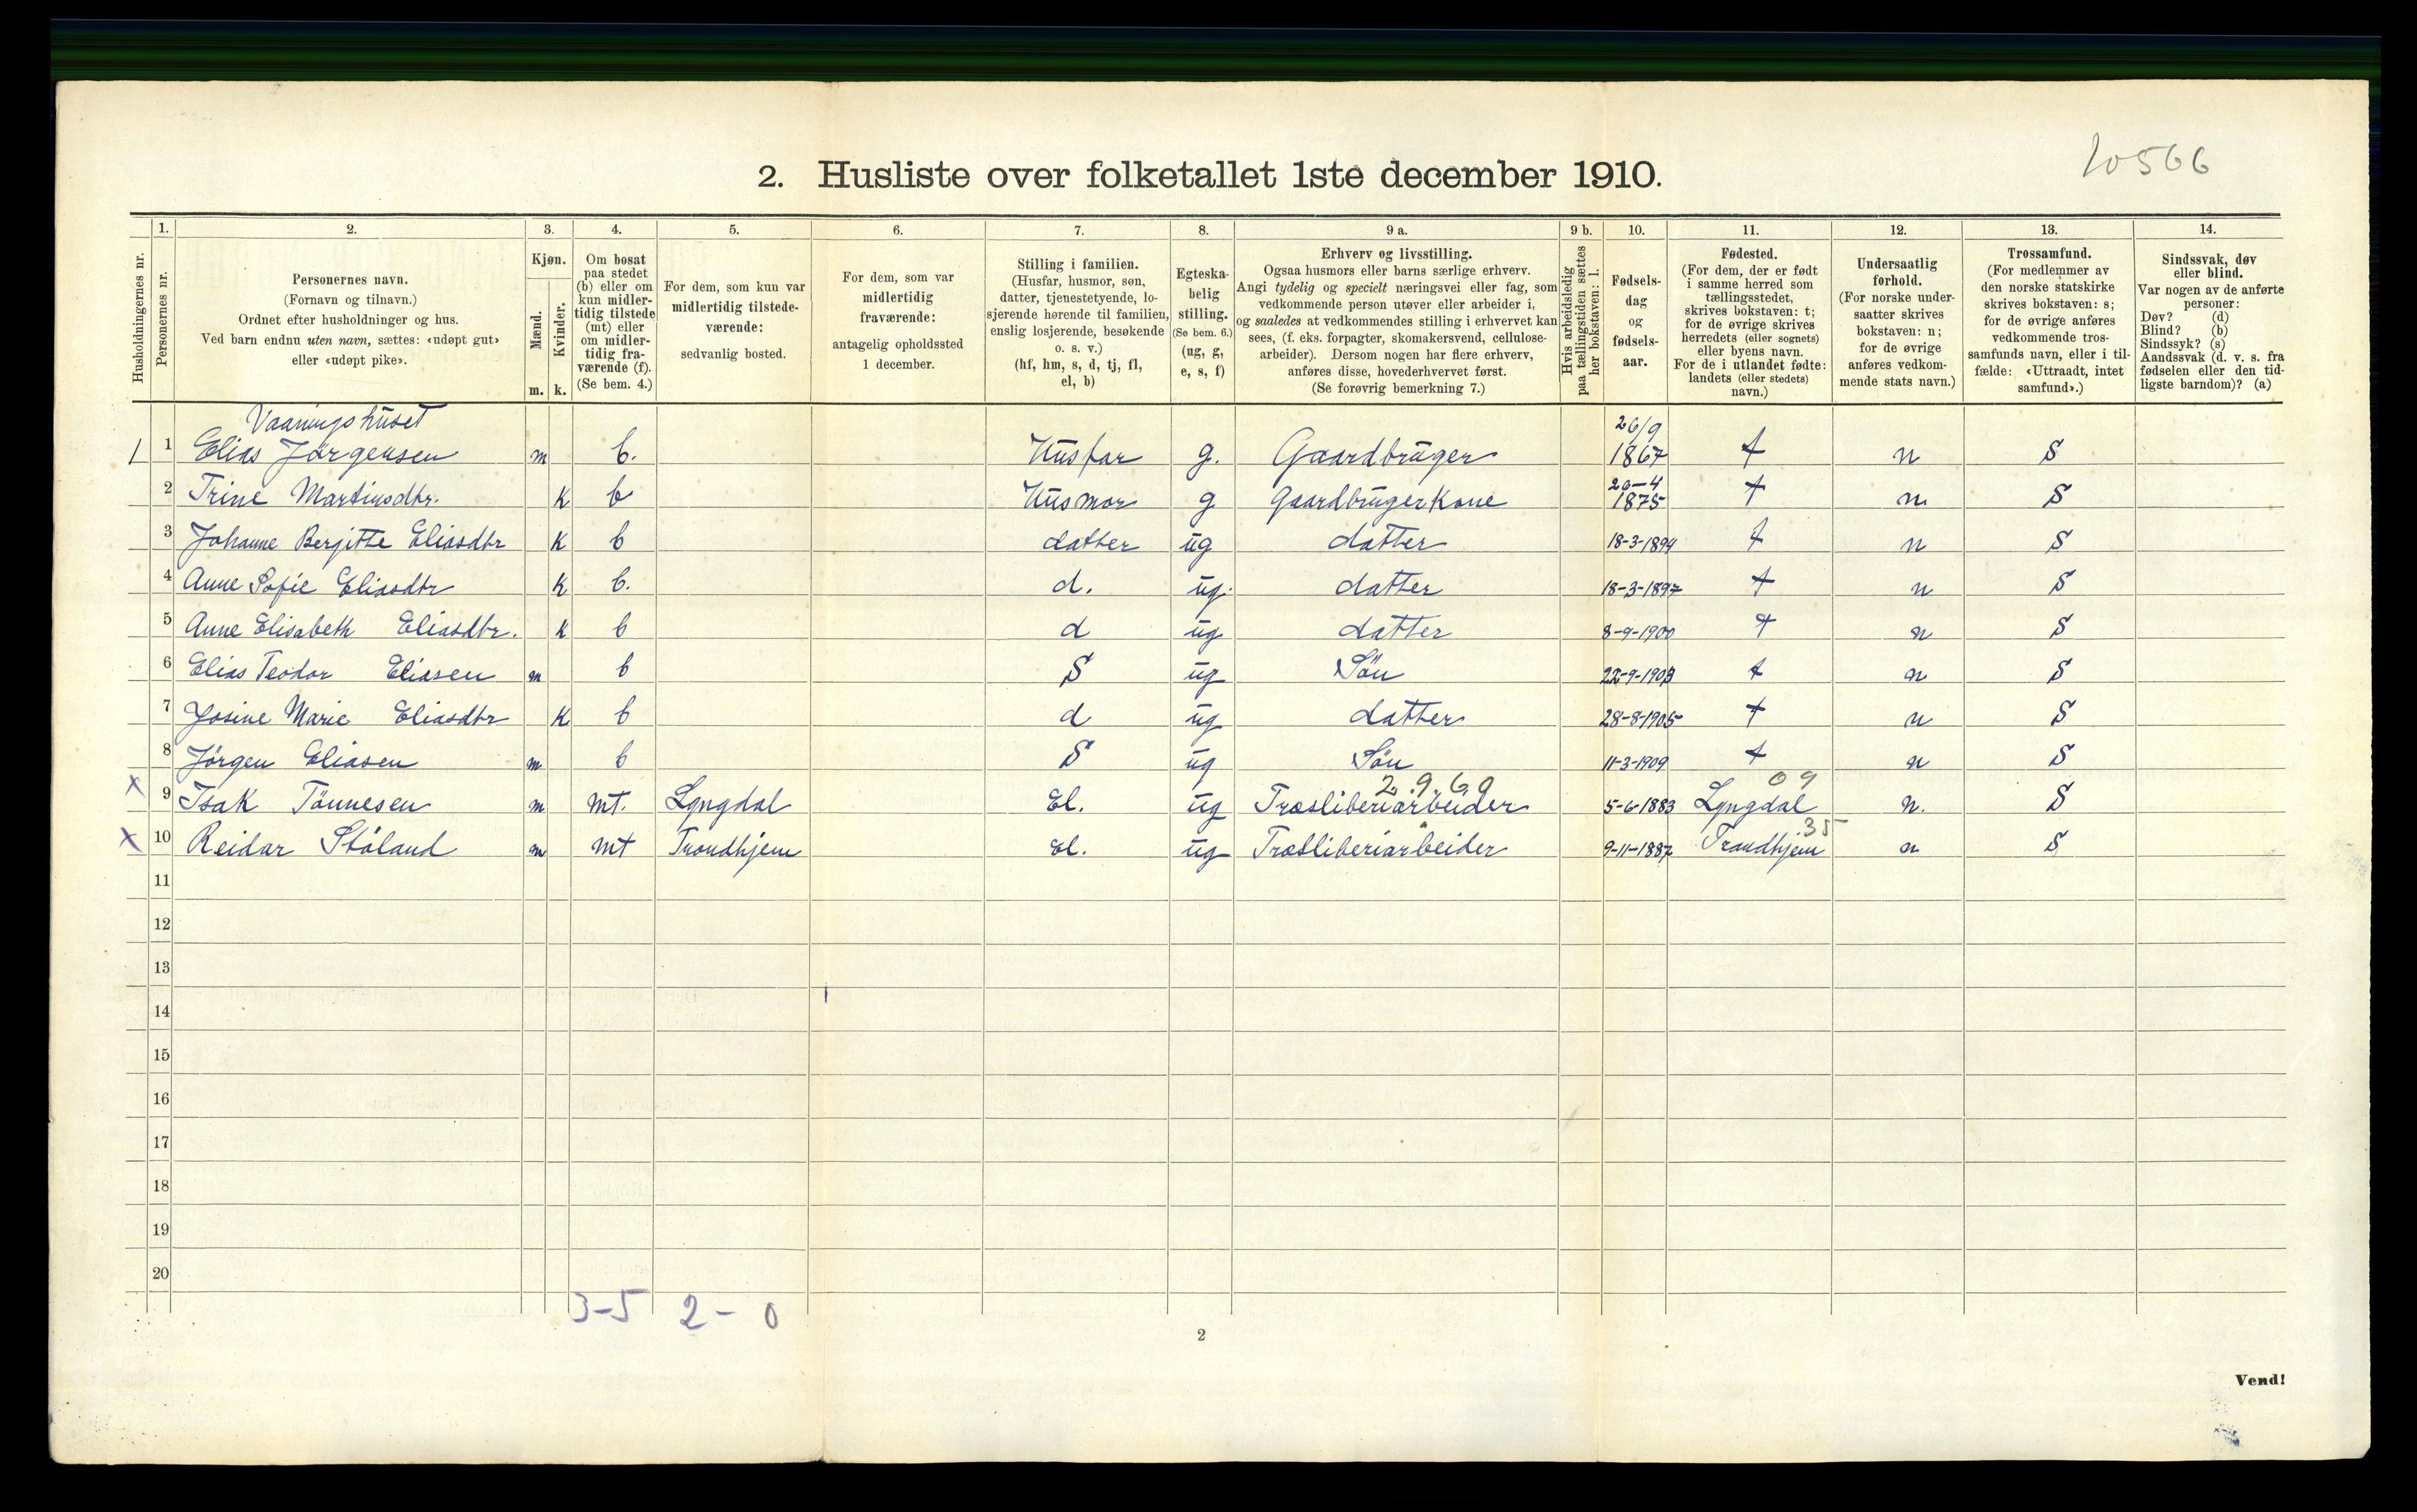 10566
2. Husliste over folketallet 1ste december 1910.
Husholdningernes nr.
1. Personernes nr.
2. Personernes navn. (Fornavn og tilnavn.) Ordnet efter husholdninger og hus. Ved barn endnu uten navn, sættes: «udøpt gut» eller «udøpt pike».
3. Kjøn. Mænd. m. Kvinder. k.
4. Om bosat paa stedet (b) eller om kun midlertidig tilstede (mt) eller om midlertidig fraværende (f). (Se bem. 4.)
5. For dem, som kun var midlertidig tilstedeværende: sedvanlig bosted.
6. For dem, som var midlertidig fraværende: antagelig opholdssted 1 december.
7. Stilling i familien. (Husfar, husmor, søn, datter, tjenestetyende, losjerende hørende til familien, enslig losjerende, besøkende o. s. v.) (hf, hm, s, d, tj, fl, el, b)
8. Egteskabelig stilling. (Se bem. 6.) (ug, g, e, s, f)
9 a. Erhverv og livsstilling. Ogsaa husmors eller barns særlige erhverv. Angi tydelig og specielt næringsvei eller fag, som vedkommende person utøver eller arbeider i, og saaledes at vedkommendes stilling i erhvervet kan sees, (f. eks. forpagter, skomakersvend, cellulosearbeider). Dersom nogen har flere erhverv, anføres disse, hovederhvervet først. (Se forøvrig bemerkning 7.)
9 b. Hvis arbeidsledig paa tællingstiden sættes her bokstaven: l.
10. Fødselsdag og fødselsaar.
11. Fødested. (For dem, der er født i samme herred som tællingsstedet, skrives bokstaven: t; for de øvrige skrives herredets (eller sognets) eller byens navn. For de i utlandet fødte: landets (eller stedets) navn.)
12. Undersaatlig forhold. (For norske undersaatter skrives bokstaven: n; for de øvrige anføres vedkommende stats navn.)
13. Trossamfund. (For medlemmer av den norske statskirke skrives bokstaven: s; for de øvrige anføres vedkommende trossamfunds navn, eller i tilfælde: «Uttraadt, intet samfund».)
14. Sindssvak, døv eller blind. Var nogen av de anførte personer: Døv? (d) Blind? (b) Sindssyk? (s) Aandssvak (d. v. s. fra fødselen eller den tidligste barndom)? (a)
Vaaningshuset
1 1 Elias Jørgensen m b. Husfar g. Gaardbruger 26/9 1867 t n S
2 Trine Martinsdtr. K b Husmor g Gaardbrugerkone 20-4 1875 t n S
3 Johanne Bergitte Eliasdtr K b datter ug datter 18-3-1894 t n S
4 Anne Sofie Eliasdtr K b. d. ug. datter 18-3-1897 t n S
5 Anne Elisabeth Eliasdtr. K b d ug datter 8-9-1900 t n S
6 Elias Teodor Eliasen m b S ug Søn 22-9-1903 t n S
7 Josine Marie Eliasdtr K b d ug datter 28-8-1905 t n S
8 Jørgen Eliasen m b S ug Søn 11-3-1909 t n S
2.9.60 09
x 9 Isak Tønnesen m mt. Lyngdal El. ug Træsliberiarbeider 5-6-1883 Lyngdal n. S
35
x 10 Reidar Støland m mt Trondhjem El. ug Træsliberiarbeider 9-11-1887 Trondhjem n S
11
12
13
14
15
16
17
18
19
20
3-5 2-0
2
Vend!